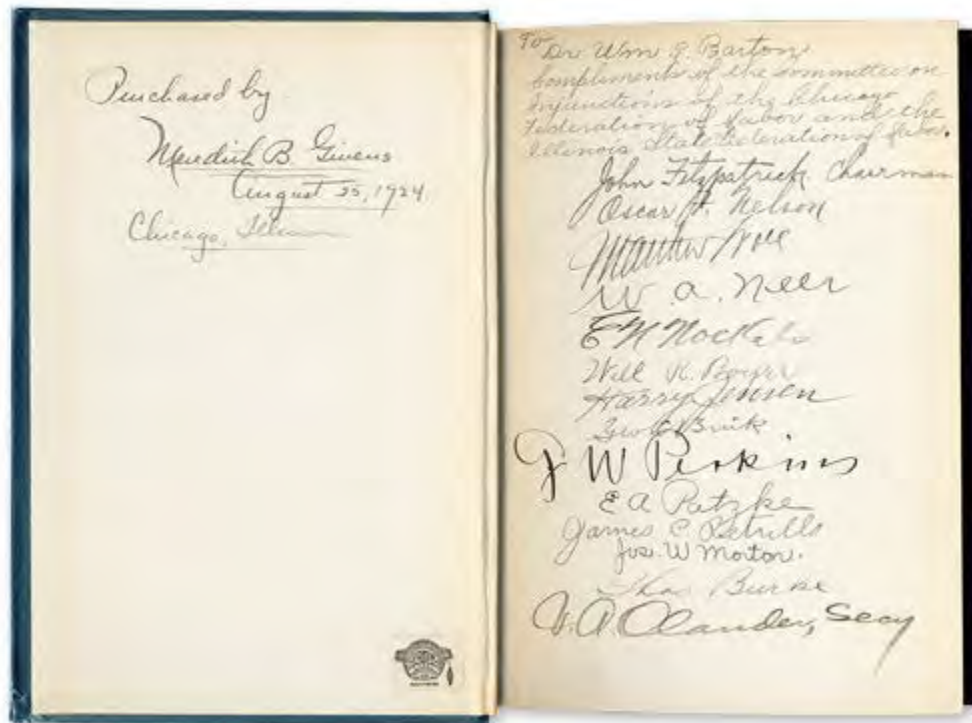 Purchased by
Meredith B. Givens
August 25, 1924
Chicago, Illinois
To
Dr Wm E. Barton
Compliments of the committee on
Injunctions of the Chicago
Federation of Labor and the
Illinois State Federation of Labor.
John Fitzpatrick Chairman
Oscar F. Nelson
Matthew Woll
W. A. Neer
E N Nockels
Will K.
Harry Jensen
Geo
W Perkins
E A Patzke
James C Petrillo
Jos. W Morton.
Thos Burke
V. A. Olander, Secy